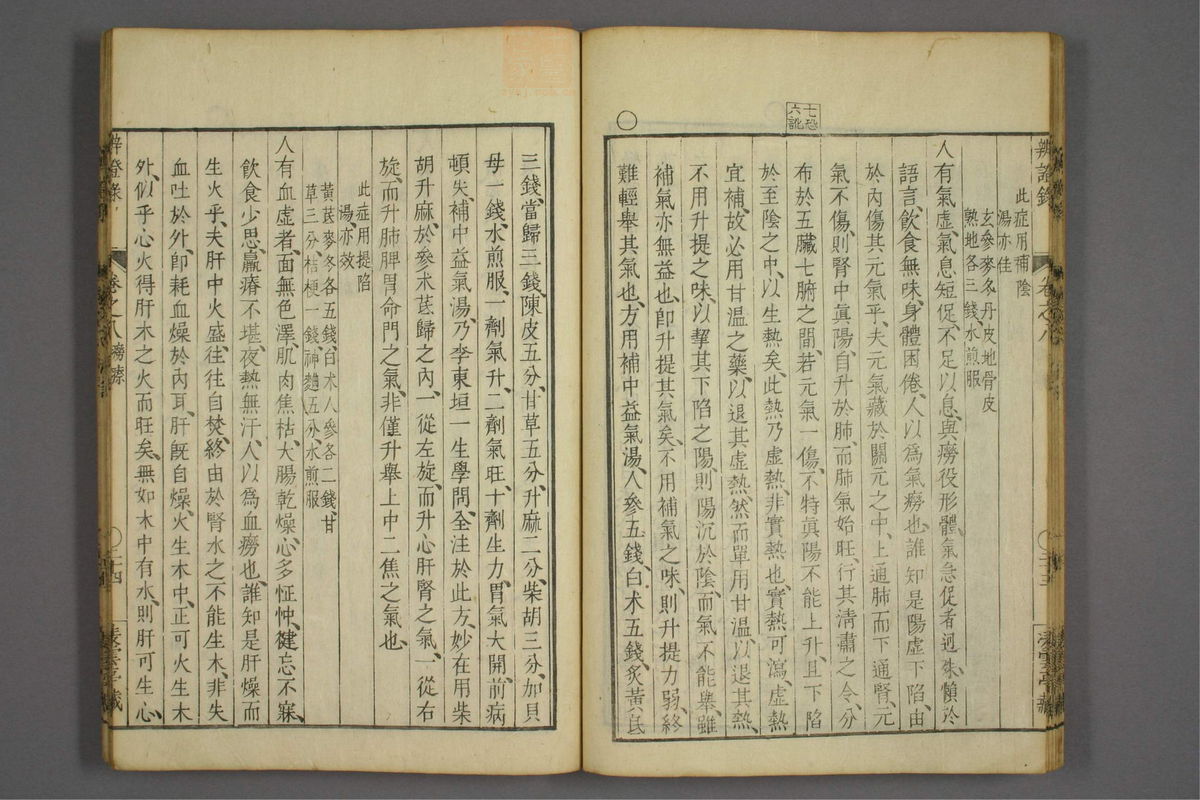 辨證錄
卷之八
此症用補陰
湯亦佳
玄參麥冬丹皮地骨皮
熟地各三錢水煎服
人有氣虛氣息短促不足以息與癆役形體氣急促者迥殊懶於
語言飲食無味身體困倦人以爲氣癆也誰知是陽虛下陷由
於內傷其元氣乎夫元氣藏於關元之中上通肺而下通腎元
氣不傷則腎中眞陽自升於肺而肺氣始旺行其清肅之令分
布於五臟七腑之間若元氣一傷不特眞陽不能上升且下陷
於至陰之中以生熱矣此熱乃虛熱非實熱也實熱可瀉虛熱
宜補故必用甘温之藥以退其虛熱然而單用甘温以退其熱
不用升提之味以挈其下陷之陽則陽沉於陰而氣不能舉雖
補氣亦無益也卽升提其氣矣不用補氣之味則升提力弱終
難輕舉其氣也方用補中益氣湯人參五錢白朮五錢炙黃芪
三錢當歸三錢陳皮五分甘草五分升麻二分柴胡三分加貝
母一錢水煎服一劑氣升二劑氣旺十劑生力胃氣大開前病
頓失補中益氣湯乃李東垣一生學問全注於此方妙在用柴
胡升麻於參朮芪歸之內一從左旋而升心肝腎之氣一從右
旋而升肺脾胃命門之氣非僅升舉上中二焦之氣也
此症用提陷
湯亦效
黃芪麥冬各五錢白朮人參各二錢甘
草三分桔梗一錢神麯五分水煎服
人有血虛者面無色澤肌肉焦枯大腸乾燥心多怔忡健忘不寐
飲食少思羸瘠不堪夜熱無汗人以爲血癆也誰知是肝燥而
生火乎夫肝中火盛往往自焚終由於腎水之不能生木非失
血吐於外卽耗血燥於內耳肝旣自燥火生木中正可火生木
外似乎心火得肝木之火而旺矣無如木中有水則肝可生心
卷之八 癆瘵